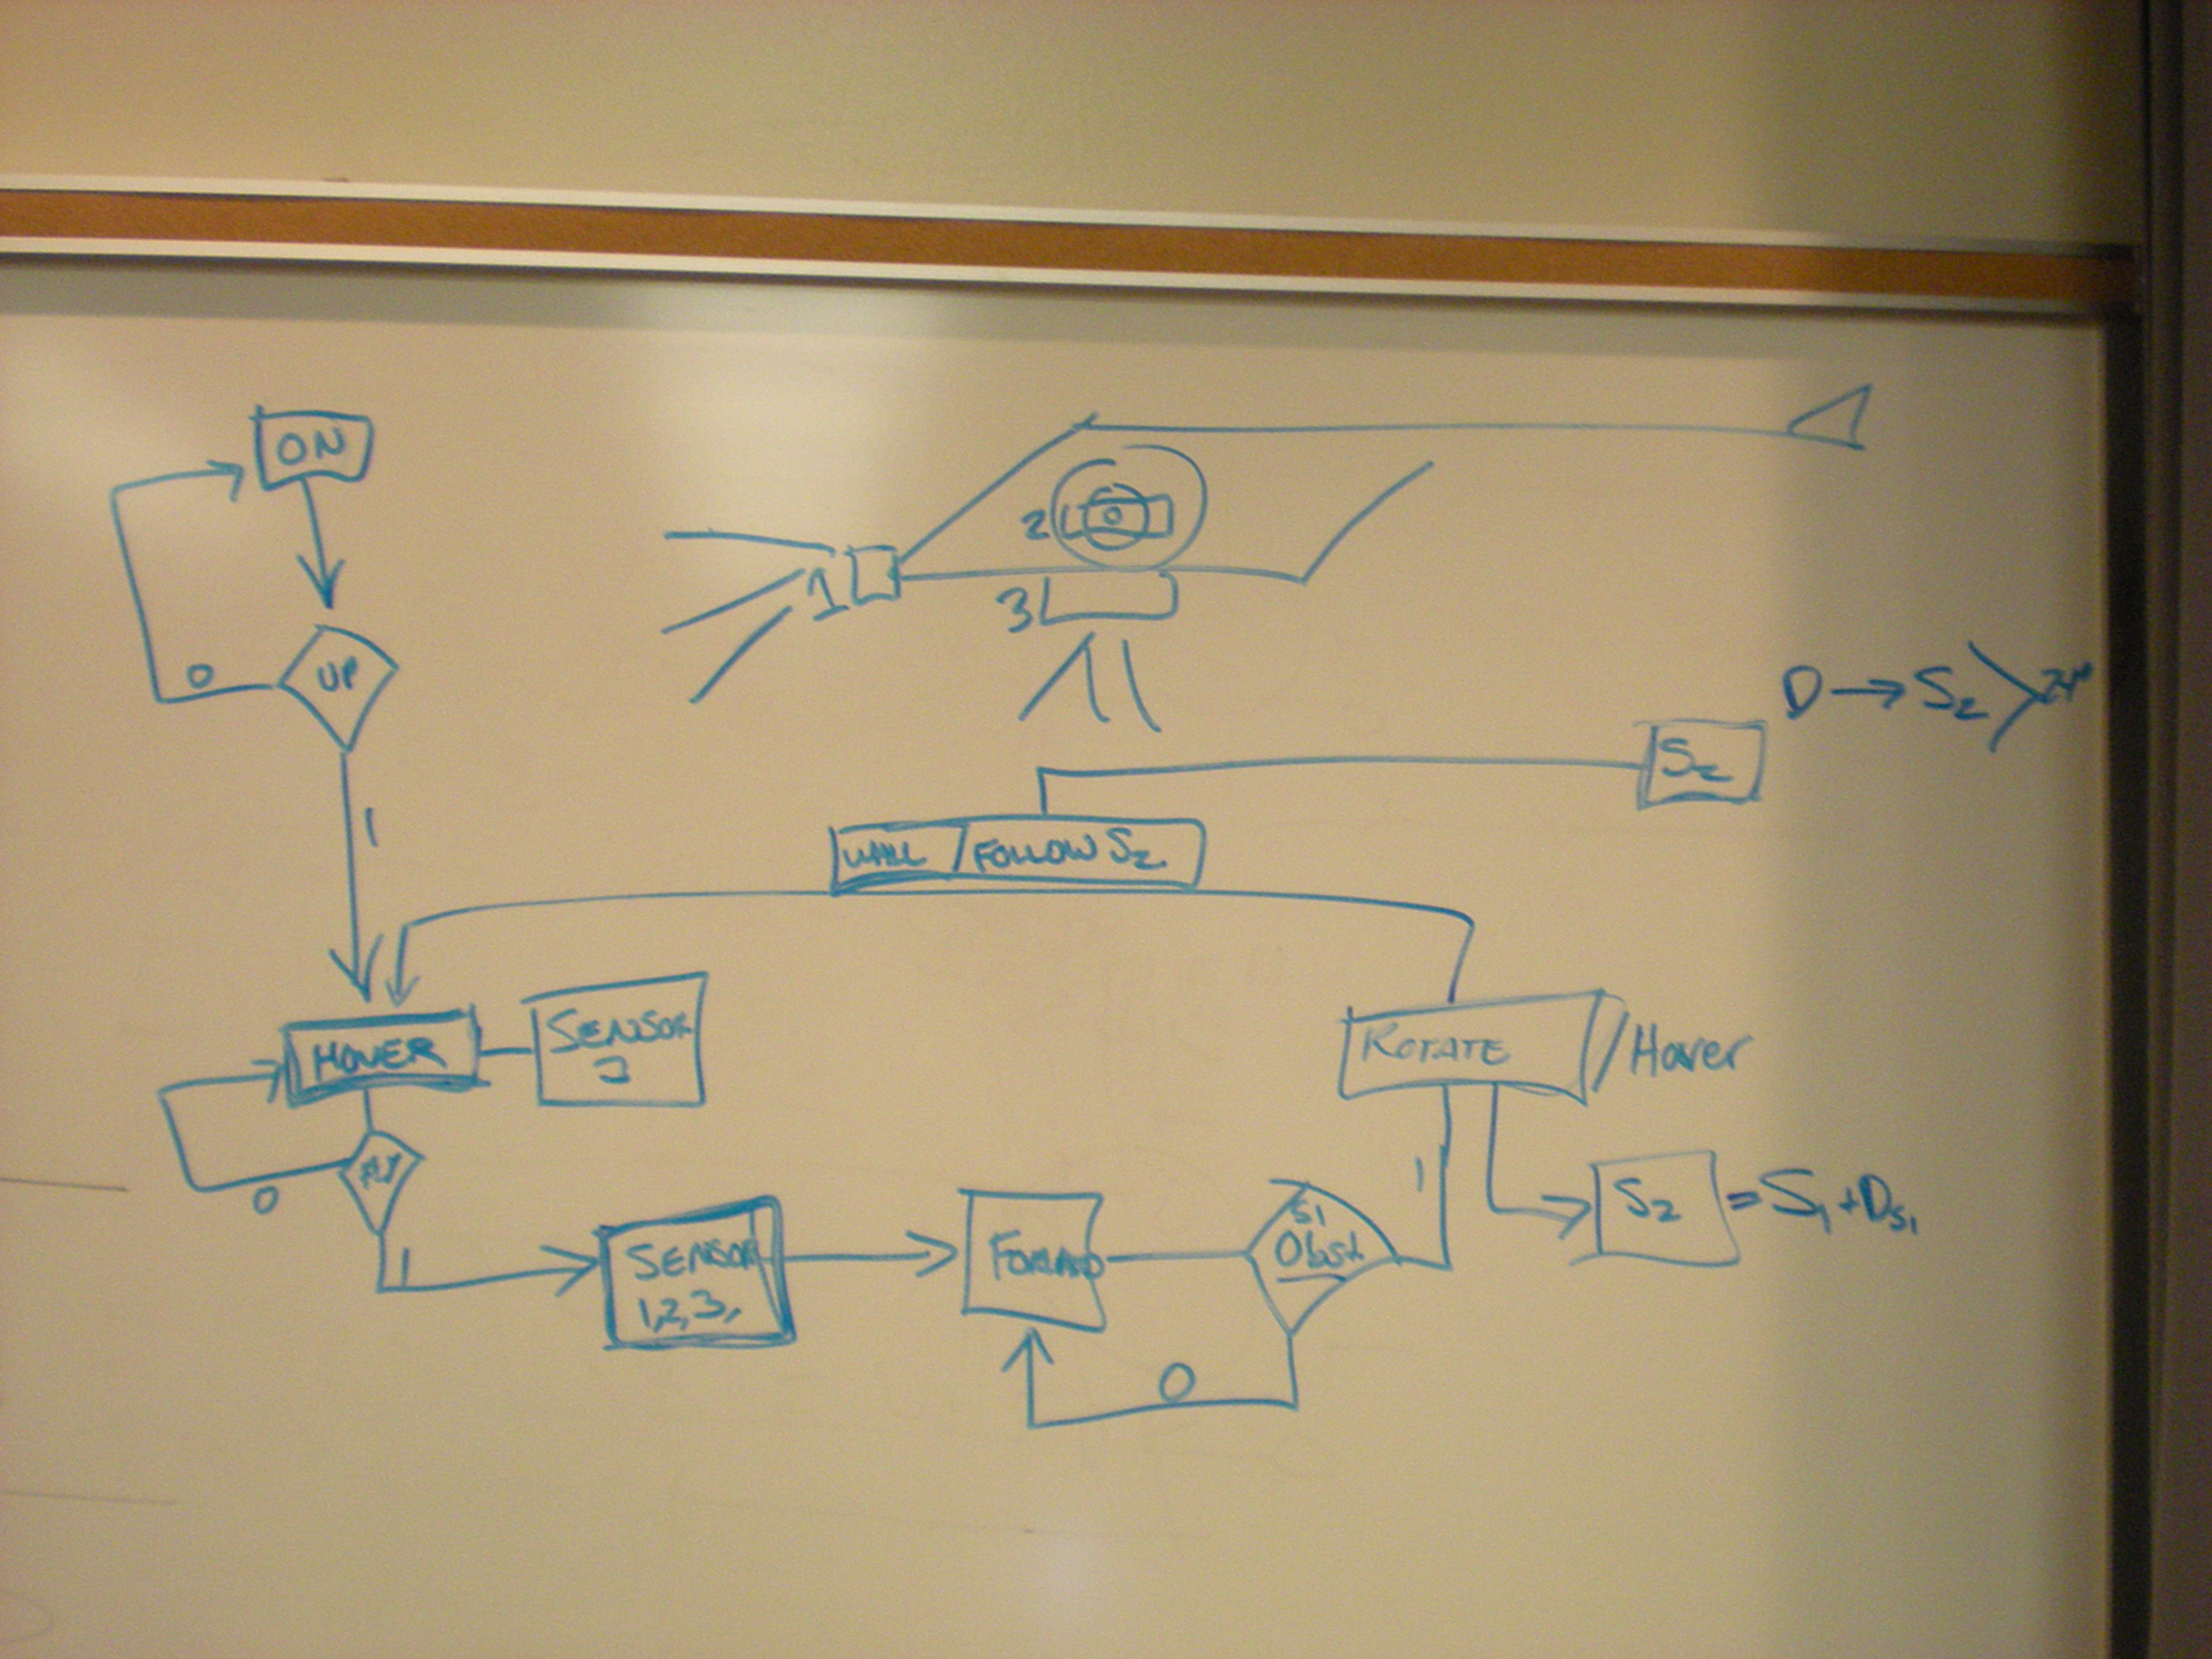 ON
UP
0
1
2
1
3
D → S2 > 24"
S2
WALL / FOLLOW S2
HOVER
SENSOR
3
ROTATE / Hover
FLY
0
1
SENSOR
1,2,3,
FORWARD
S1
Obst
0
1
S2 = S1 + DS1